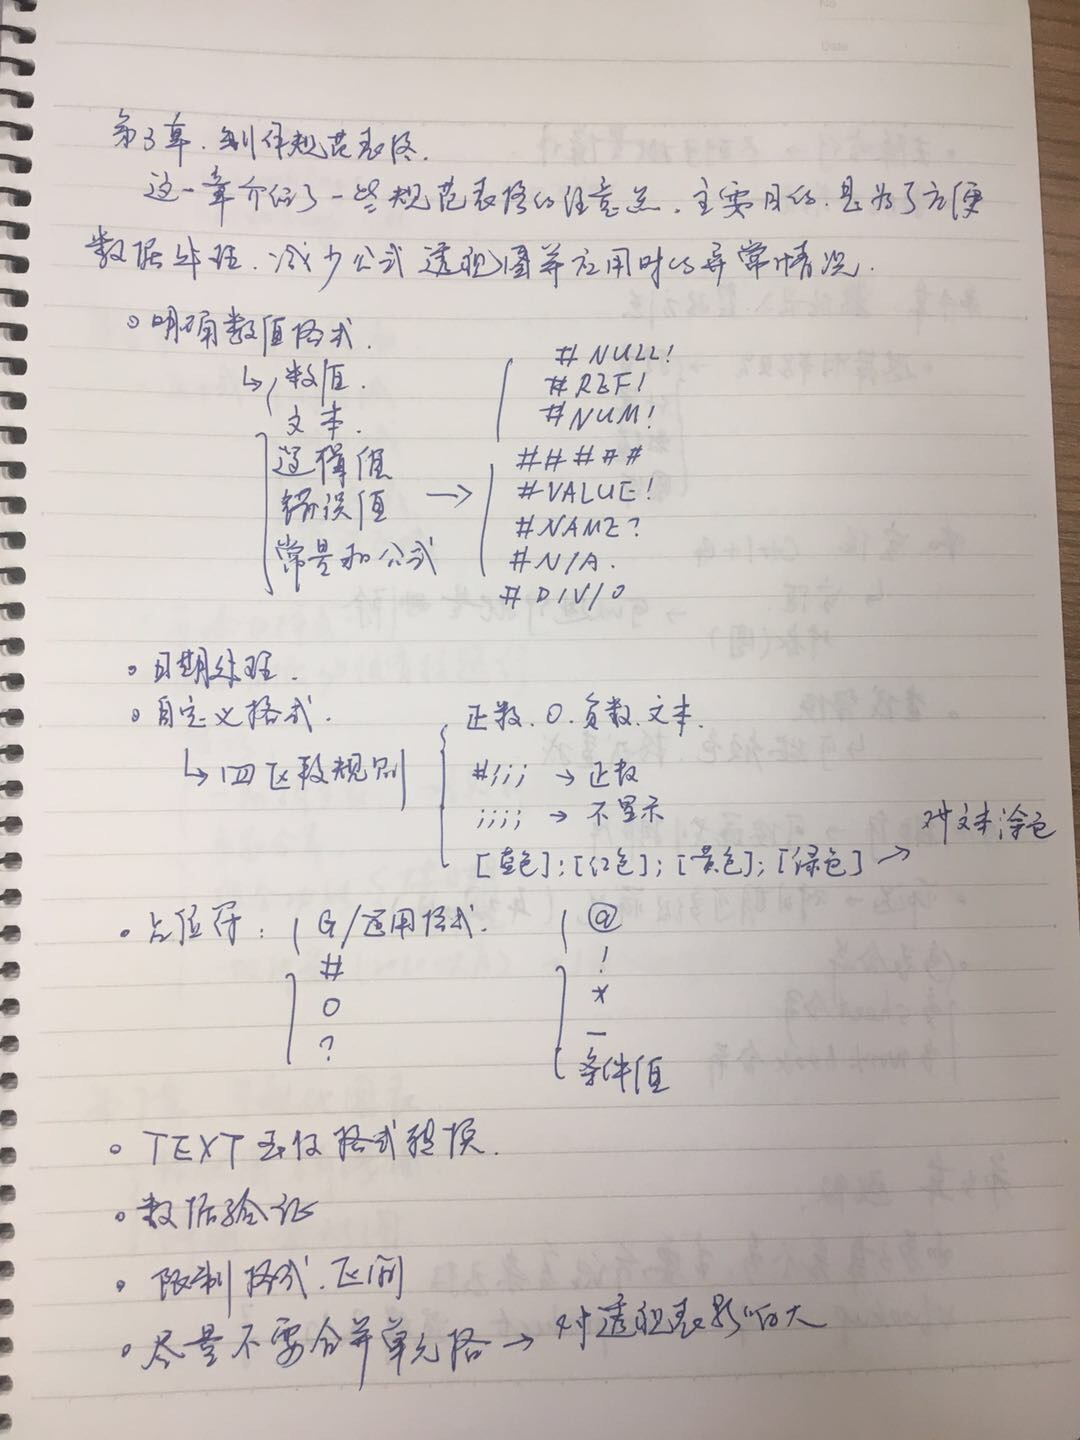 第3章.制作规范表格.
这一章介绍了一些规范表格的注意点.主要目的.是为了方便
数据处理.减少公式透视图等应用时的异常情况.
明确数值格式.
↳ 数值.
文本.
逻辑值
错误值 →
常量和公式
#NULL!
#REF!
#NUM!
#####
#VALUE!
#NAME?
#N/A.
#DIV/0
日期处理.
自定义格式.
↳四区段规则
正数.0.负数.文本.
#;;; → 正数
;;;; → 不显示
[蓝色];[红色];[黄色];[绿色] → 对文本涂色
占位符:
G/通用格式.
#
0
?
@
!
*
_
条件值
TEXT 函数格式转换.
数据验证
限制格式.区间
尽量不要合并单元格 → 对透视表影响大
No
Date